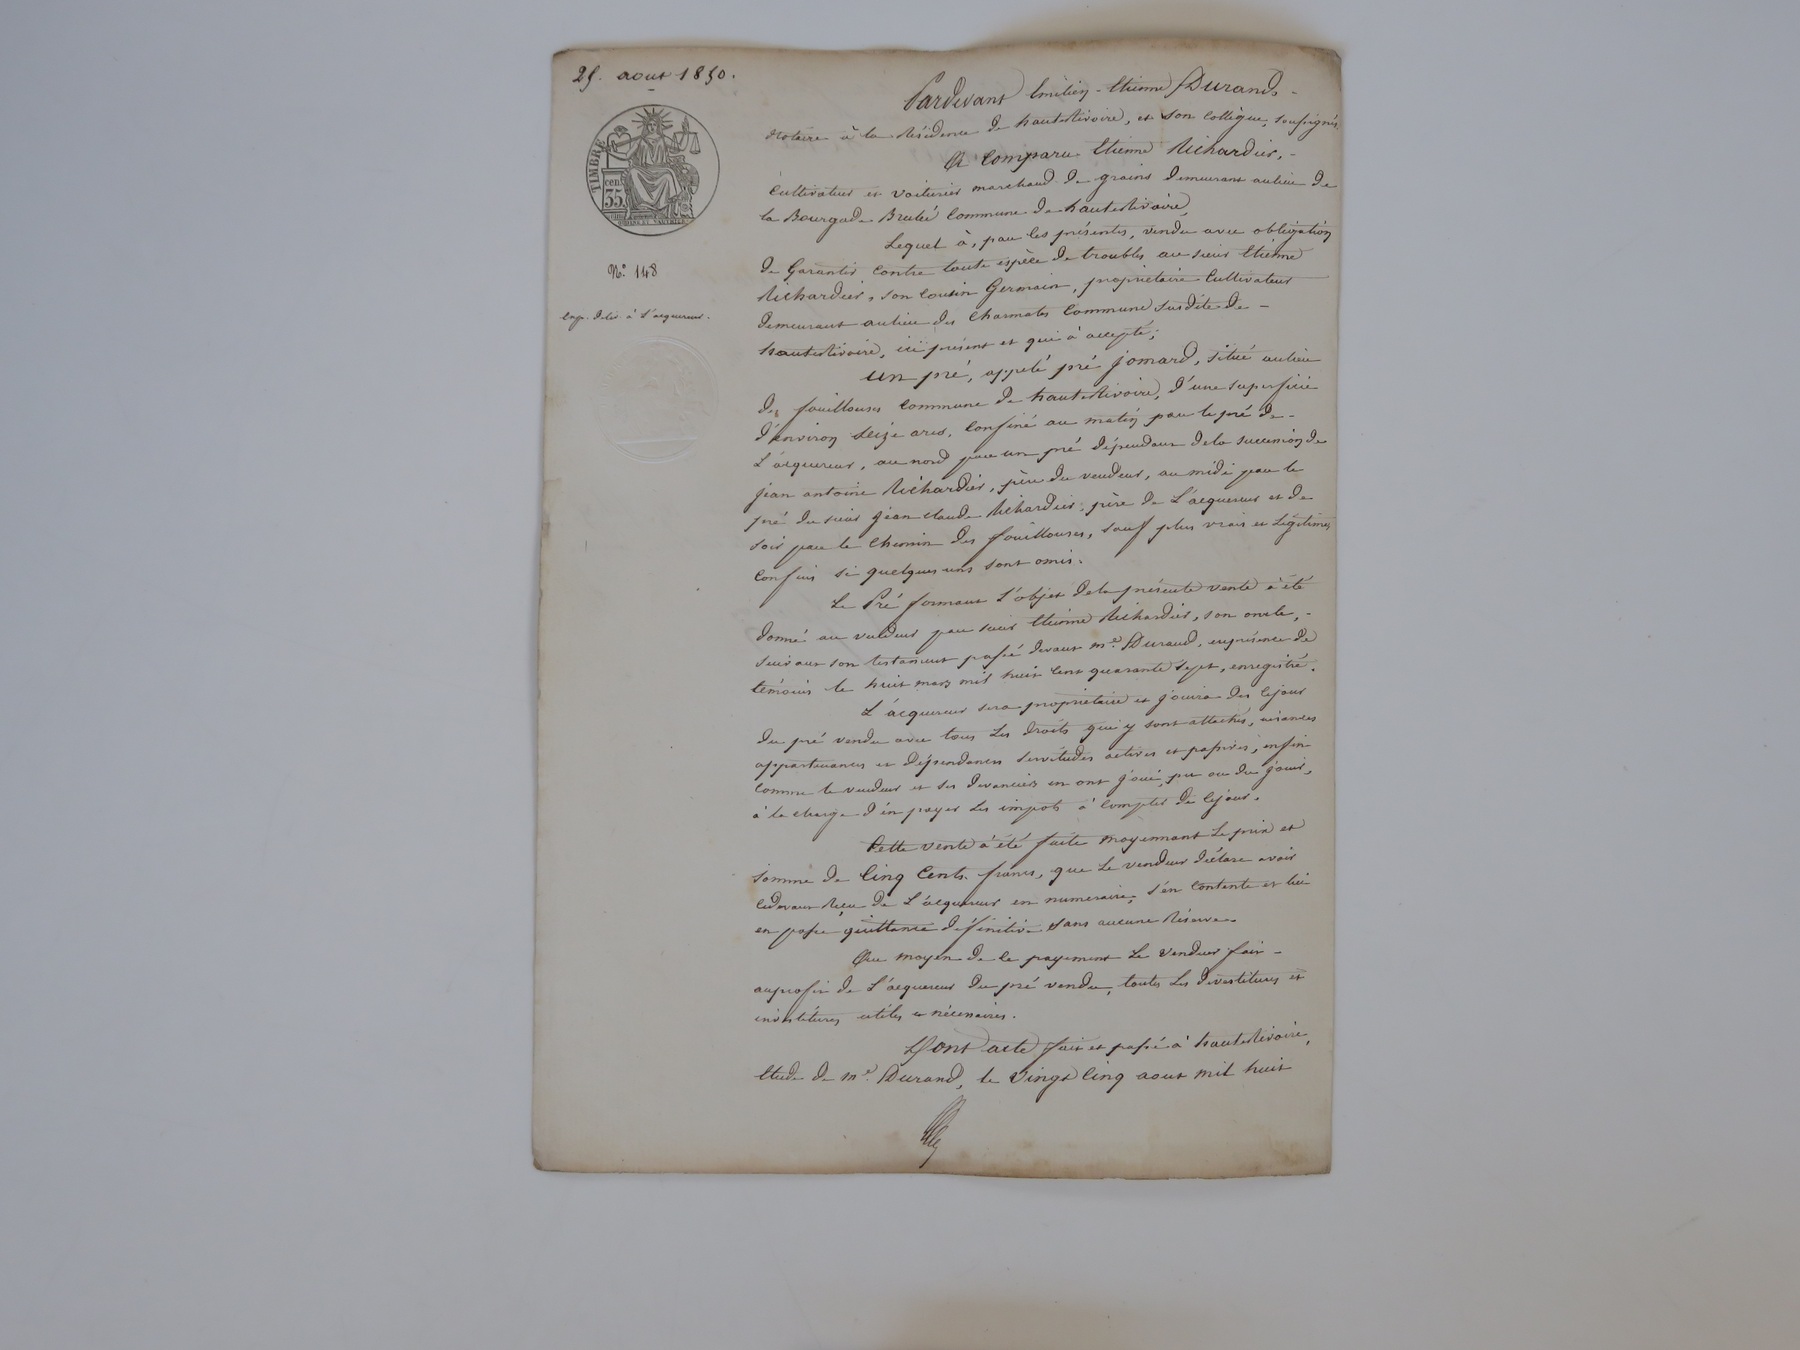 25. aout 1850.
TIMBRE
cen.
35
N.° 148
Exp. déliv. à l'acquereur.
Pardevant Emilien-Etienne Durand,
Notaire à la Résidence de hauterivoire, et son collègue, soussignés
A Comparu Etienne Richardier,
Cultivateur et voiturier marchand de grains demeurant aulieu de
la Bourgade Brulée Commune de hauterivoire,
Lequel à, par les présentes, vendu avec obligation
de Garantir Contre toute espèce de troubles au sieur Etienne
Richardier, son Cousin Germain, propriétaire Cultivateur
demeurant aulieu des Charmates Commune susdite de
hauterivoire, ici présent et qui à accepté;
un pré, appelé pré jomard, situé aulieu
des fouillouses Commune de hauterivoire, d'une superficie
d'environ seize ares, Confiné au matin par le pré de
L'acquereur, au nord par un pré dépendant dela succession de
jean antoine Richardier, père du vendeur, au midi par le
pré du sieur jean claude Richardier, père de L'acquereur et de
soir par le Chemin des fouillouses, sauf plus vrais et Légitimes
Confins si quelques uns sont omis.
Le Pré formant l'objet dela présente vente à été
donné au vendeur par sieur Etienne Richardier, son oncle,
suivant son testament passé devant me. Durand, enprésence de
témoins le huit mars mil huit cent quarante sept, enregistré.
L'acquereur sera propriétaire et jouira dès cejour
du pré vendu avec tous Les droits qui y sont attachés, aisances
appartenances et dépendances servitudes actives et passives, enfin
Comme le vendeur et ses devanciers en ont joui, pu ou du jouir,
à la charge d'en payer les impots à Compter de cejour.
Cette vente à été faite moyennant Le prix et
somme de Cinq Cents francs, que Le vendeur déclare avoir
cidevant Reçu de L'acquereur en numeraire, s'en Contente et lui
en passe quittance définitive sans aucune Réserve.
Au moyen de ce payement Le vendeur fait
auprofit de L'acquereur du pré vendu, toutes Les dévestitures et
investitures utiles et nécessaires.
Dont acte fait et passé à hauterivoire,
Etude de me. Durand, le vingt Cinq aout mil huit